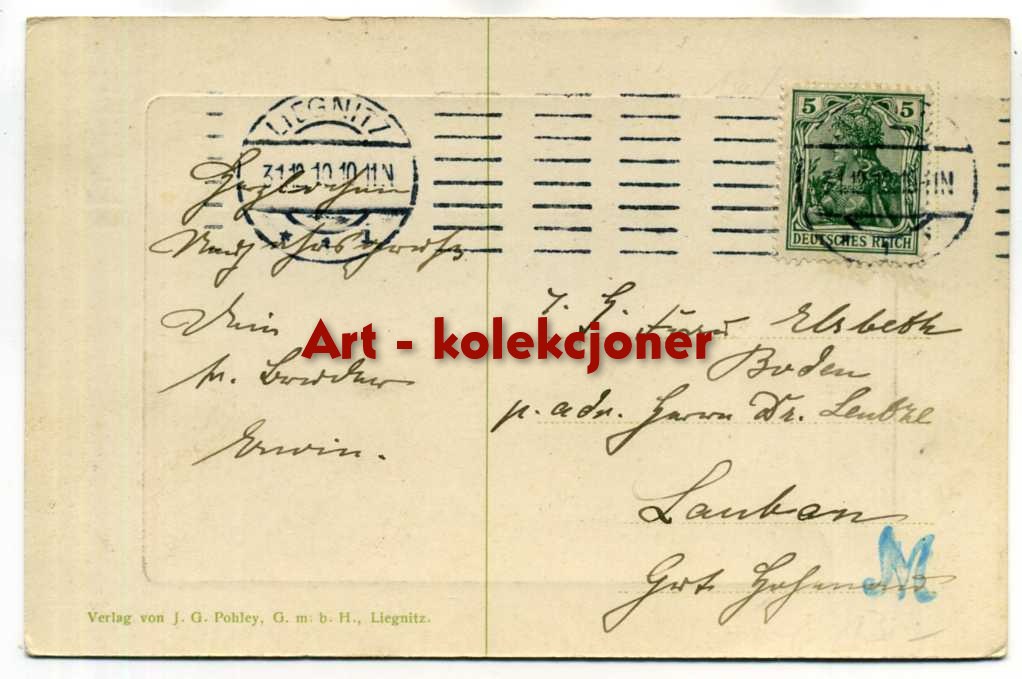 LIEGNITZ
31.12.10.10-11N
* 1
5 5
DEUTSCHES REICH
Herzlichen
Neujahrsgruß
Dein
Bruder
Erwin.
Art - kolekcjoner
Elsbeth
Boden
p. adr. Herrn Dr.
Lauban
M
Verlag von J. G. Pohley, G. m. b. H., Liegnitz.